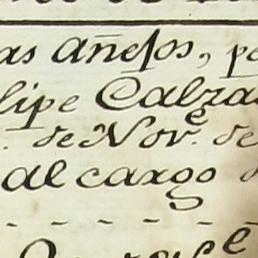 as añejos, pe
lipe Calza
. de Nov.e de
al cargo d